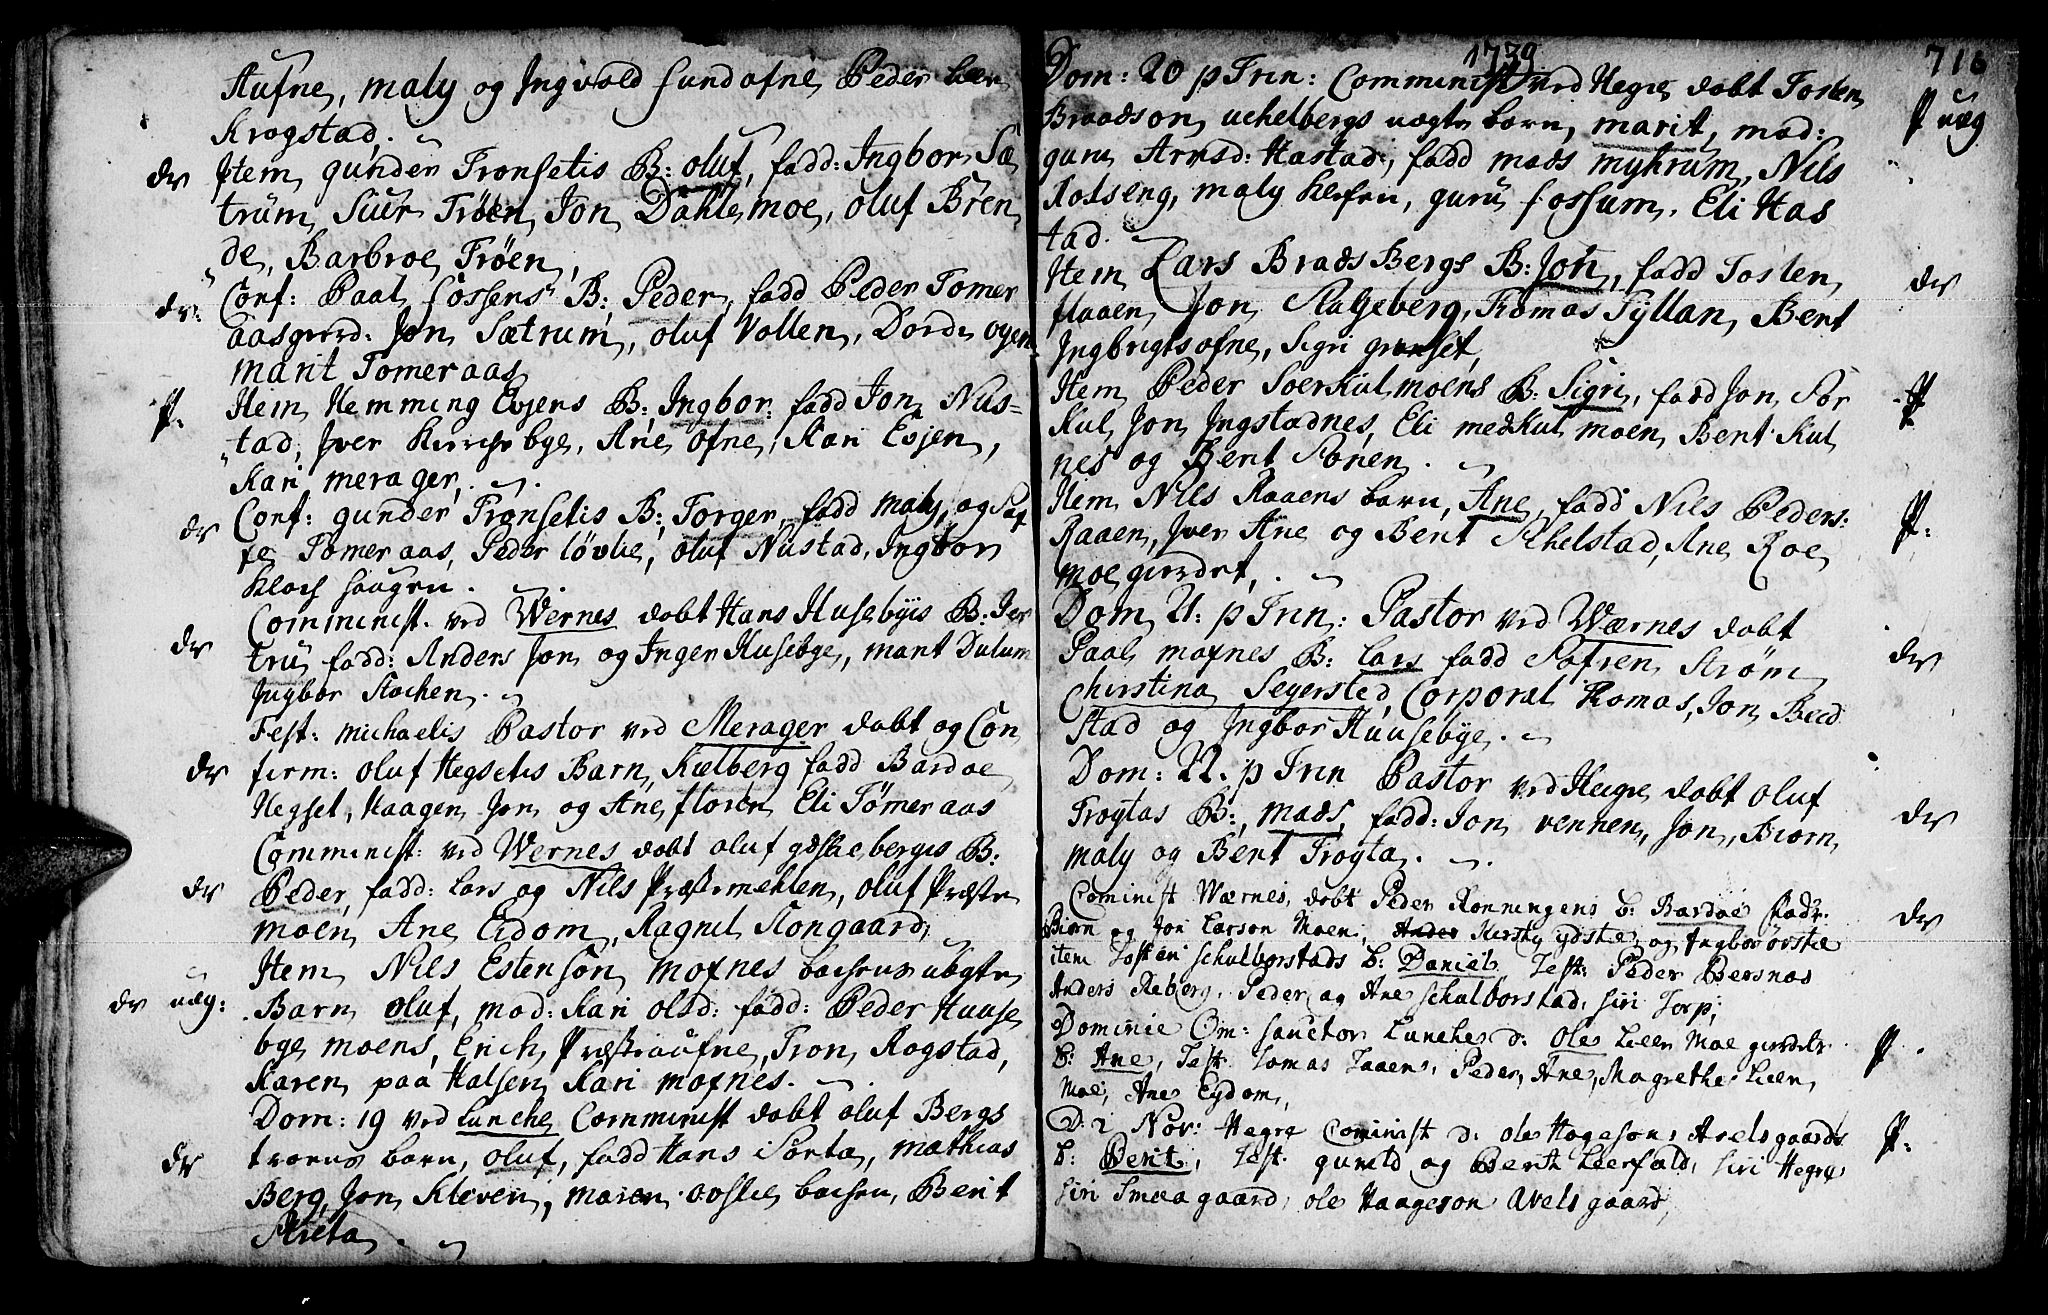 Aufne, maly og Ingvold sundofne Peder
Krogstad.
dr Item gunder Tronsetis B: oluf, fadd: Ingbor Sæ
trum, Siur Trøen, Jon Dahle moe, oluf Bren
de, Barbroe Trøen,
dr: Conf: Paal fossens B: Peder, fadd Peder Tomer
aasgierd: Jon Sætrum, oluf Vollen, Dorde
marit Tomeraas
P. Item Hemming Evjens B: Ingbor: fadd Jon Nus=
tad, Iver bye, Ane ofne, Kari Evjen,
Kari merager.
dr Conf: gunder Tronsetis B: Torger, fadd maly, og
Tomeraas, Peder løvlie, oluf Nustad, Ingbor
Kloch haugen.
Comminist. ved Wernes dobt Hans Husebyis B: Jer
dr tru fadd: Anders Jon og Inger Husebye, marit Dulum
Ingbor Stochen.
Fest: michaelis Pastor ved Merager dobt og Con
dr firm: oluf Hegsetis Barn, Kielberg fadd Bardoe
Hegset, Haagen Jon og Ane floren Eli Tømeraas
Comminist: ved Wernes dobt oluf bergis B:
dr Peder, fadd: Lars og Nils Præstemehlen, oluf Præste
moen, Ane Eidom, Ragnil Kongaard,
Item Nils Estenson mofnes uegte
dr uæg: Barn oluf, mod: Kari olsd: fadd: Peder Huuse
bye moens, Erich Præstaufne, Tron Rogstad,
Karen paa Halsen Kari mofnes.
Dom: 19 ved Lunche Comminist dobt oluf Bergs
dr barn, oluf, fadd Hans Sorta, mathias
Berg, Jon Kleven, maren Berit
Skieta
1739 716
Dom: 20 p Trin: Comminist ved Hegre dobt Tosten P uæg
Braadson uchelbergs uægte barn, marit, mod:
guru Arnsd: Hastad, fadd mads myhrum, Nils
Rodseng, maly, guru fossum, Eli Has
tad.
Item Lars Brads Bergs B: Jon, fadd Tosten dr
flaaen Jon Skalseberg, Tomas Tyllan, Bent
Ingbrigts ofne, Sigri grønset,
Item Peder Soerkilmoens B: Sigri, fadd Jon Sør P
Kul Jon Ingstadnes, Eli medKul moen Bent Kul
nes og Bent Sonen.
Item Nils Raaens barn, Ane, fadd Nils Peders: P:
Raaen, Iver Ane og Bent Skelstad, Ane Roe
moe gierdet.
Dom 21: p Trin: Pastor ved Wærnes dobt
Paal mofnes B: Lars fadd Sofren Strøm dr
Christina Segersted, Corporal Tomas, Jon Bied
stad og Ingbor Huusebye.
Dom: 22. p Trin Pastor ved Heigre dobt oluf
Trogtas B:, mads, fadd: Jon vennen, Jon, Biorn, dr
maly og Bent Trogta.
Cominist Wærnes, dobt Peder Ronningens b: Bardoe fadr: dr
Biørn og Jon Larson Moen, Kirsty ydstie og Ingbor Ørstie
item Tosten Schulborstads b: Daniel, Test: Peder Bersnas
Anders Reberg, Peder og Ane Schulborstad, Siri Torp;
Dominic Om: Sanctor Lunche d: Oles Leer Moe gierdets P.
b: Ane, Test: Tomas, Peder, Ane, Magrethe Leen,
Moe, Ane Eydom,
D: 2 Nov: Hegre Cominist d: ole Hogesons Avelsgaards P:
b: Berit, Test. gunild og Berith Leerfald, Siri Hegre
Siri Smeagaard, ole Haageson Avelsgaard,